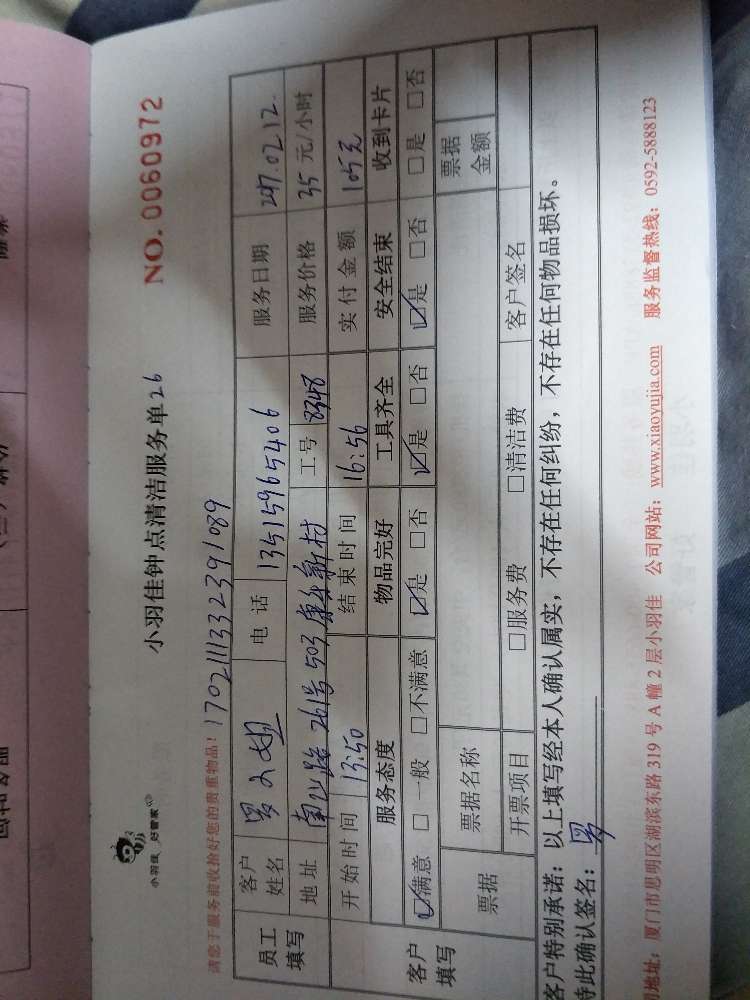 小羽佳 好管家
小羽佳钟点清洁服务单26
NO. 0060972
请您于服务前收拾好您的贵重物品！170211132391089
员工填写 客户姓名 罗小姐 电话 13515965406 服务日期 2017.02.12.
地址 南山路261号503康乐新村 工号 8348 服务价格 35 元/小时
开始时间 13:50 结束时间 16:56 实付金额 105元
客户填写 服务态度 物品完好 工具齐全 安全结束 收到卡片
☑满意 □一般 □不满意 ☑是 □否 ☑是 □否 ☑是 □否 □是 □否
票据 票据名称 票据金额
开票项目 □服务费 □清洁费 客户签名
客户特别承诺：以上填写经本人确认属实，不存在任何纠纷，不存在任何物品损坏。
特此确认签名：罗
地址：厦门市思明区湖滨东路319号A幢2层小羽佳 公司网站：www.xiaoyujia.com 服务监督热线：0592-5888123